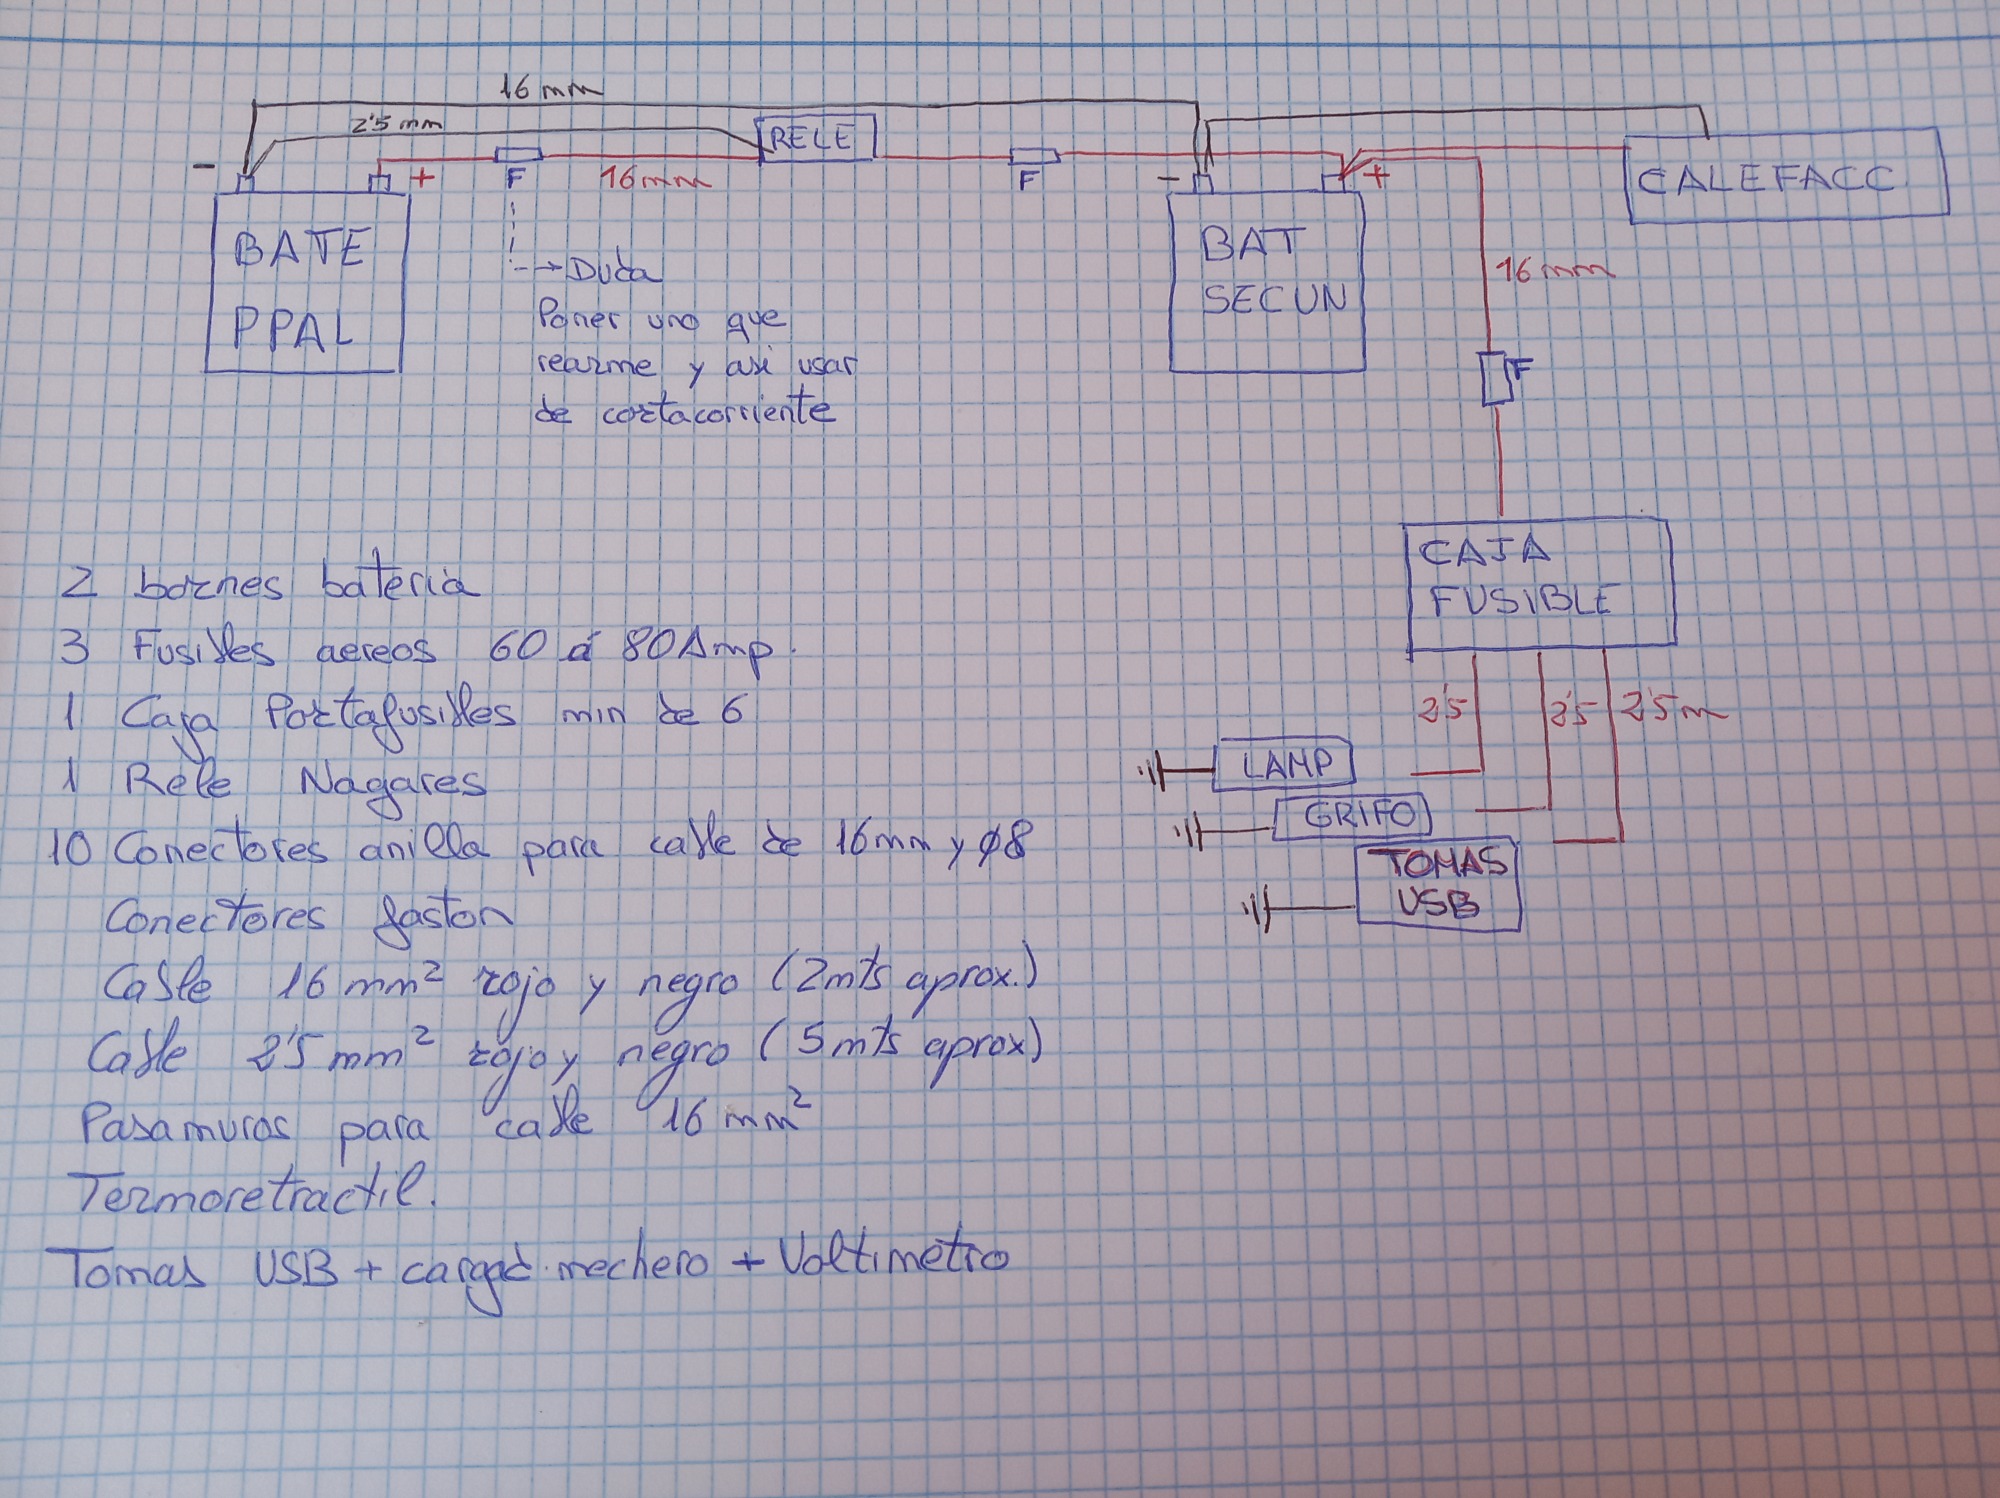 16 mm
2'5 mm
RELE
- + F 16mm F - + CALEFACC
BATE
PPAL
BAT
SECUN
16 mm
Duda
Poner uno que
rearme y asi usar
de cortacorriente
F
CAJA
FUSIBLE
2 bornes bateria
3 Fusibles aereos 60 á 80Amp.
1 Caja Portafusibles min de 6
1 Rele Nagares
10 Conectores anilla para cable de 16mm y ø8
Conectores faston
Cable 16 mm² rojo y negro (2mts aprox.)
Cable 2'5 mm² rojo y negro (5mts aprox)
Pasamuros para cable 16 mm²
Termoretractil.
Tomas USB + cargad. mechero + Voltimetro
2'5 2'5 2'5 m
LAMP
GRIFO
TOMAS
USB